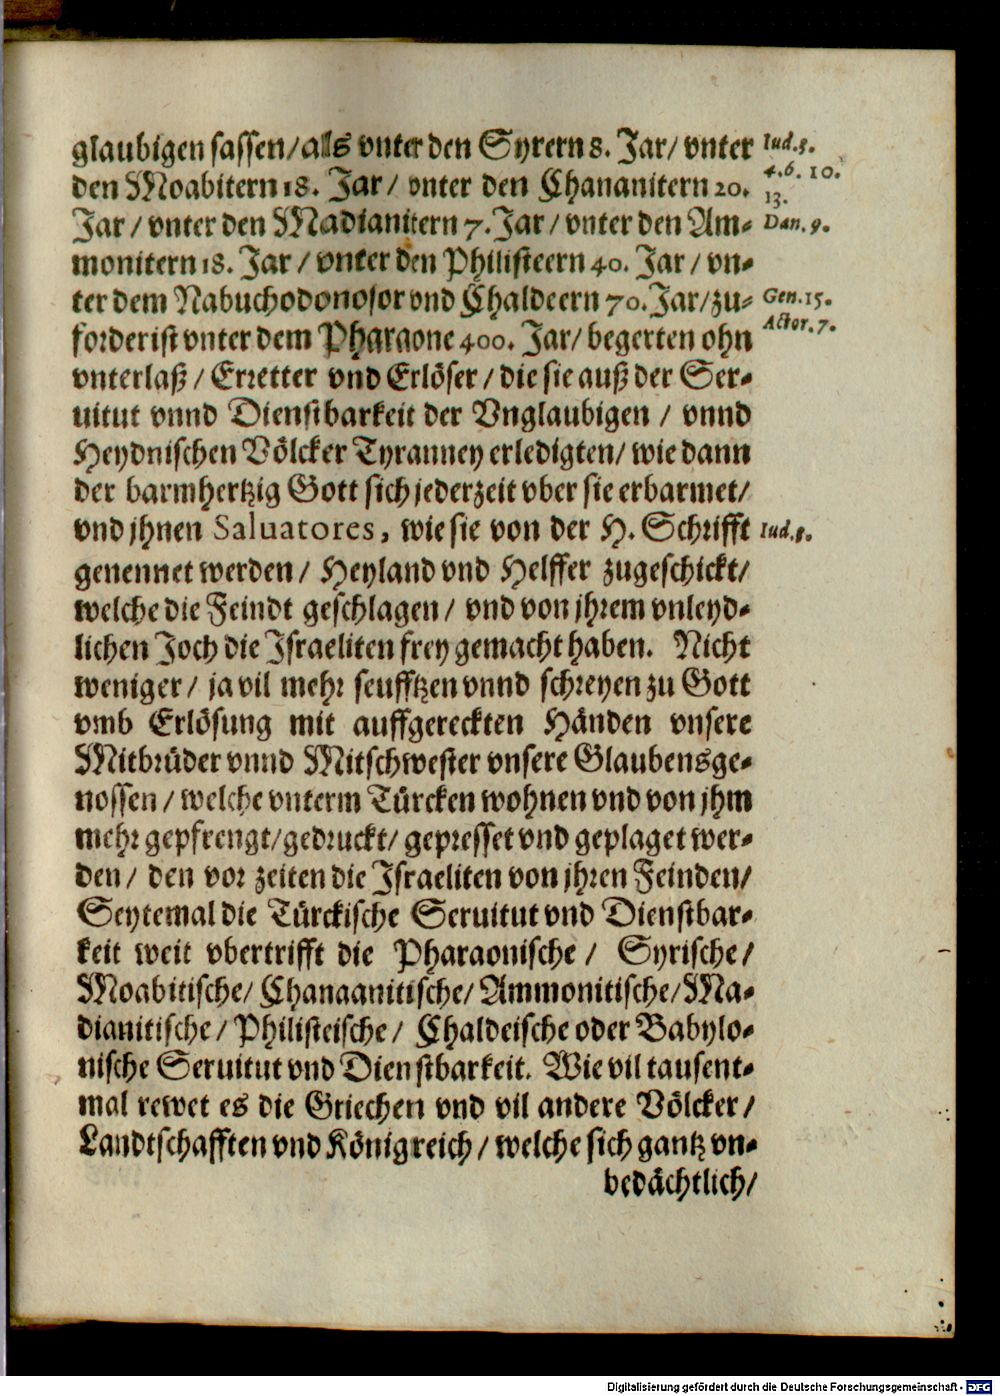 glaubigen sassen/als vnter den Syrern 8. Jar/ vnter
den Moabitern 18. Jar/ vnter den Chananitern 20.
Jar/ vnter den Madianitern 7. Jar/ vnter den Am-
monitern 18. Jar/ vnter den Philisteern 40. Jar/ vn-
ter dem Nabuchodonosor vnd Chaldeern 70. Jar/zu-
forderist vnter dem Pharaone 400. Jar/ begerten ohn
vnterlaß/ Erretter vnd Erlöser/ die sie auß der Ser-
uitut vnnd Dienstbarkeit der Vnglaubigen/ vnnd
Heydnischen Völcker Tyranney erledigten/ wie dann
der barmhertzig Gott sich jederzeit vber sie erbarmet/
vnd jhnen Saluatores, wie sie von der H. Schrifft
genennet werden/ Heyland vnd Helffer zugeschickt/
welche die Feindt geschlagen/ vnd von jhrem vnleyd-
lichen Joch die Israeliten frey gemacht haben. Nicht
weniger/ ja vil mehr seufftzen vnnd schreyen zu Gott
vmb Erlösung mit auffgereckten Händen vnsere
Mitbrüder vnnd Mitschwester vnsere Glaubensge-
nossen/ welche vnterm Türcken wohnen vnd von jhm
mehr gepfrengt/gedruckt/ gepresset vnd geplaget wer-
den/ den vor zeiten die Israeliten von jhren Feinden/
Seytemal die Türckische Seruitut vnd Dienstbar-
keit weit vbertrifft die Pharaonische/ Syrische/
Moabitische/ Chanaanitische/ Ammonitische/Ma-
dianitische/ Philisteische/ Chaldeische oder Babylo-
nische Seruitut vnd Dienstbarkeit. Wie vil tausent-
mal rewet es die Griechen vnd vil andere Völcker/
Landtschafften vnd Königreich/ welche sich gantz vn-
bedächtlich/
4.6. 10.
13.
Dan. 9.
Gen. 15.
Actor. 7.
Digitalisierung gefördert durch die Deutsche Forschungsgemeinschaft - DFG